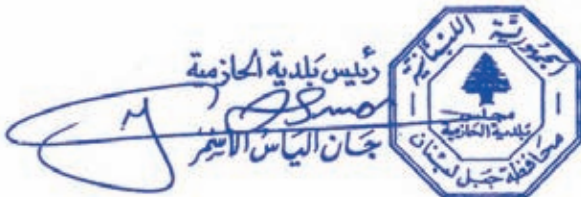 رئيس بلدية الحازمية
جان الياس الأسمر
الجمهورية اللبنانية
مجلس
بلدية الحازمية
محافظة جبل لبنان